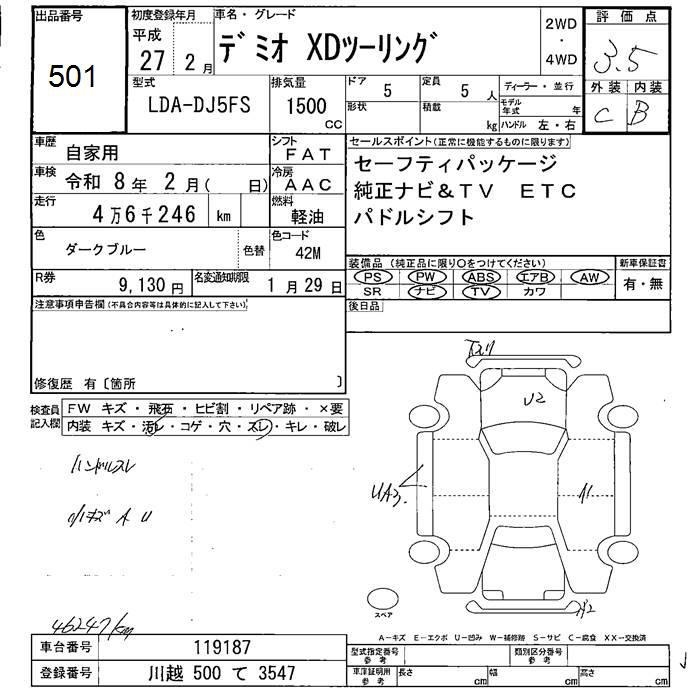 出品番号
501
初度登録年月
平成
27 2月
車名・グレード
デミオ XDツーリング
2WD
・
4WD
評価点
3.5
外装 内装
C B
型式
LDA-DJ5FS
排気量
1500
cc
ドア 5
形状
定員 5 人
積載 kg
ディーラー・並行
モデル年式 年
ハンドル 左・右
車歴 自家用
シフト FAT
車検 令和 8年 2月( 日)
冷房 AAC
走行 4万6千246 km
燃料 軽油
色 ダークブルー 色替
色コード 42M
R券 9,130円
名変通知期限 1月29日
セールスポイント(正常に機能するものに限ります)
セーフティパッケージ
純正ナビ&TV ETC
パドルシフト
装備品 (純正品に限り○をつけてください)
PS PW ABS エアB AW
SR ナビ TV カワ
新車保証書
有・無
後日品
注意事項申告欄(不具合内容等は具体的に記入して下さい)
修復歴 有〔箇所 〕
検査員記入欄
FW キズ・飛石・ヒビ割・リペア跡・×要
内装 キズ・汚レ・コゲ・穴・スレ・キレ・破レ
ハンドルスレ
小キズ A U
下スリ
U2
UA3
A1
スペア
A2
46247km
A-キズ E-エクボ U-凹み W-補修跡 S-サビ C-腐食 XX-交換済
車台番号 119187
登録番号 川越 500 て 3547
型式指定番号 参考
類別区分番号 参考
車庫証明用 参考 長さ cm 幅 cm 高さ cm